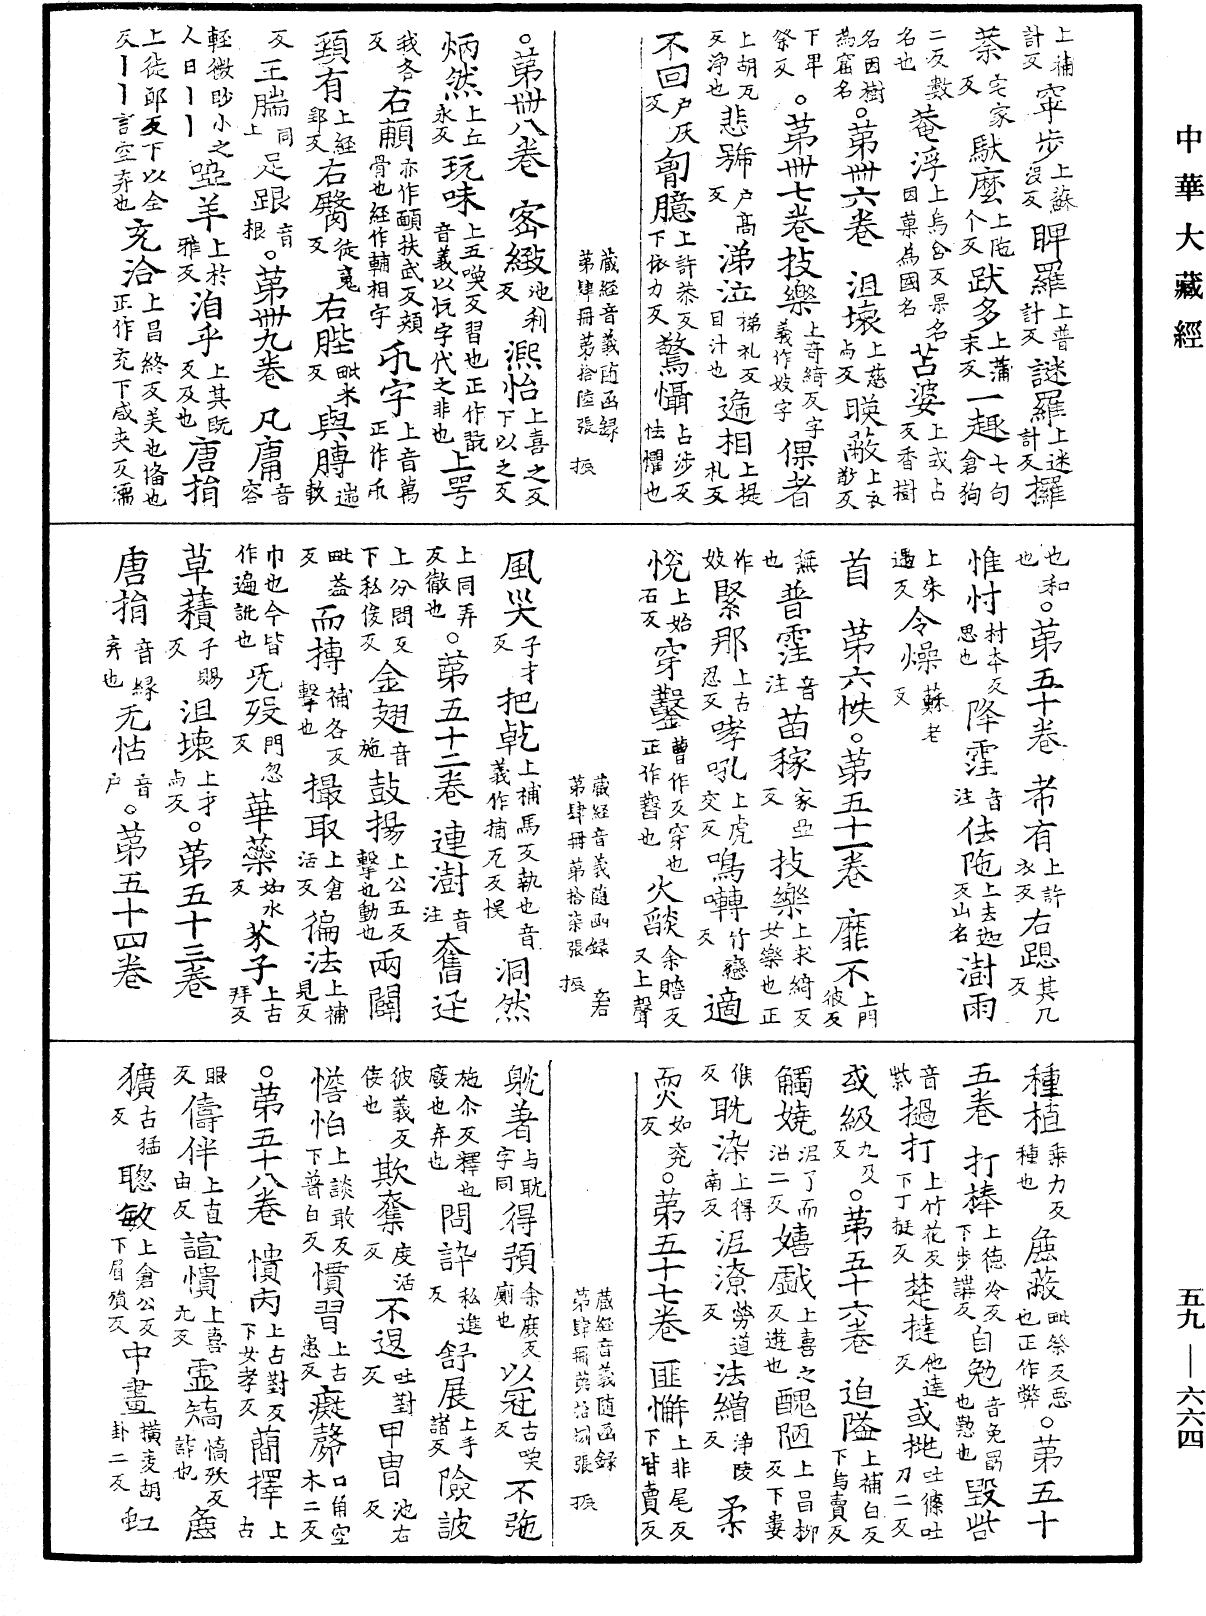 中華大藏經
上補計反 寍步 上蘇没反 睥羅 上普計反 謎羅 上迷計反 攞
荼 宅家反 馱麼 上陁个反 跋多 上蒲末反 一趣 七句倉狗
二反數名也 菴浮 上烏含反果名因菓為國名 苫婆 上或占反香樹
名因樹為窟名 。第卌六卷 沮壞 上慈与反 暎蔽 上衣敬反
下畢祭反 。第卌七卷 技樂 上竒綺反字義作妓字 倮者
上胡瓦反淨也 悲號 户髙反 涕泣 上梯礼反目汁也 遞相 上提礼反
不回 户灰反 匈臆 上許恭反下於力反 驚懾 占涉反怯懼也
藏經音義随函録 第肆冊第拾陸張 振
。第卌八卷 密緻 池利反 凞怡 上喜之反下以之反
炳然 上丘永反 玩味 上五喚反習也正作翫音義以忨字代之非也 上咢
我各反 右䫌 亦作䩉扶武反頰骨也經作輔相字 卐字 上音萬正作卍
頸有 上經郢反 右臋 徒䰟反 右䏶 毗米反 與膊 遄軟
反 王腨 同上 足跟 音根 。第卌九卷 凡庸 音容
輕微眇小之人曰丨丨 啞羊 上於雅反 洎乎 上其旣反及也 唐捐
上徒郎反下以全反丨丨言空弃也 充洽 上昌終反美也俻也正作充下咸夾反濡
也和也 。第五十卷 希有 上許衣反 右跽 其几反
惟忖 村本反思也 降霔 音注 佉陁 上去迦反山名 澍雨
上朱遇反 令燥 蘇老反
首 第六帙。第五十一卷 靡不 上門彼反
無也 普霔 音注 苗稼 家亞反 技樂 上求綺反女樂也正
作妓 緊那 上古忍反 哮吼 上虎交反 鳴囀 竹戀反 適
悅 上始石反 穿鑿 曹作反穿也正作鑿也 火𦦨 余贍反又上聲
藏經音義随函録 第肆冊第拾柒張 振 君
風災 子才反 把乾 上補馬反執也音義作捕 洞然
上同弄反徹也 。第五十二卷 連澍 音注 奮迅
上分問反下私俊反 金翅 音施 鼓揚 上公五反擊也動也 兩闢
毗益反 而摶 補各反擊也 撮取 上倉活反 徧法 上補見反
帀也今皆作遍訛也 旡歿 門忽反 華蘂 如水反 芥子 上古拜反
草𧂐 子賜反 沮壞 上才与反 。第五十三卷
唐捐 音緣弃也 无怙 音户 。第五十四卷
種植 乗力反種也 麁蔽 毗祭反惡也正作弊 。第五十
五卷 打棒 上德冷反下步講反 自勉 音免勗也勲也 毀呰
音紫 撾打 上竹花反下丁挺反 楚撻 他達反 或挑 吐條吐刀二反
或級 九及反 。第五十六卷 迫隘 上補白反下烏賣反
觸嬈 泥了而沼二反 嬉戲 上喜之反遊也 醜陋 上昌柳反下婁
候反 耽染 上得南反 泥潦 勞道反 法繒 淨陵反 柔
耎 如兖反 。第五十七卷 匪懈 上非尾反下皆賣反
藏經音義随函録 第肆冊第拾捌張 振
躭著 与耽字同 得預 余庶反廁也 以冠 古喚反 不弛
施尒反釋也廢也弃也 問訊 私進反 舒展 上手諸反 險詖
彼義反佞也 欺奪 度活反 不退 吐對反 甲冑 池右反
憺怕 上談敢反下普白反 慣習 上古患反 癡㱿 口角空木二反
。第五十八卷 憒丙 上古對反下女孝反 蕳擇 上古
眼反 儔伴 上直由反 諠憒 上喜九反 靈矯 憍殀反詐也 麁
獷 古猛反 聰敏 上倉公反下眉殞反 中畫 橫麦胡卦二反 虹
五九—六六四